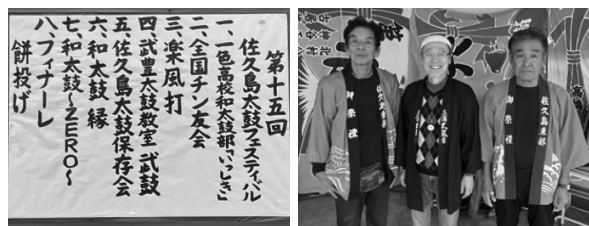 第十五回
佐久島太鼓フェスティバル
一、一色高校和太鼓部「いっしき」
二、全国チン友会
三、楽風打
四、武豊太鼓教室 武鼓
五、佐久島太鼓保存会
六、和太鼓 縁
七、和太鼓～ZERO～
八、フィナーレ
餅投げ
御祭禮
御祭禮
佐久島